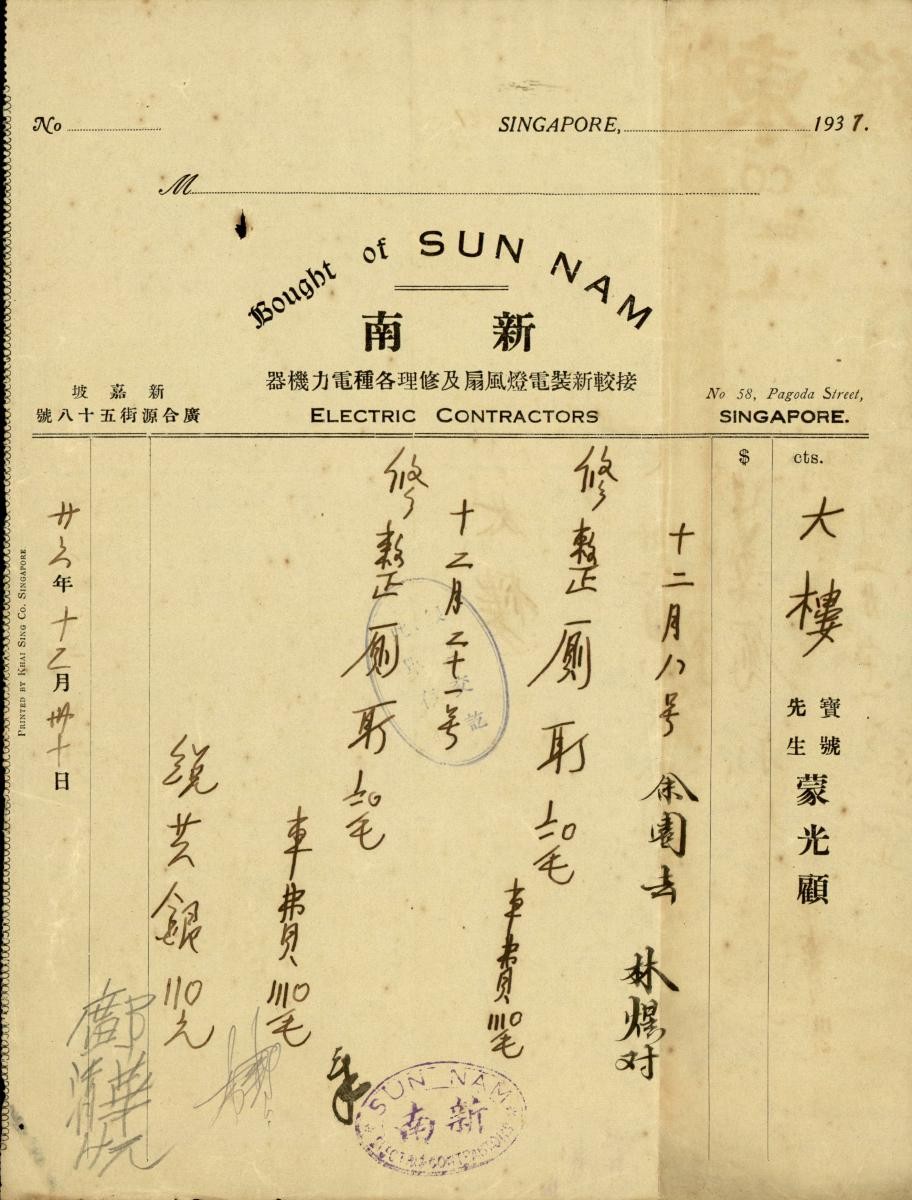 No
SINGAPORE, 1937.
M
Bought of SUN NAM
南新
器機力電種各理修及扇風燈電裝新較接
ELECTRIC CONTRACTORS
坡嘉新
號八十五街源合廣
No 58, Pagoda Street,
SINGAPORE.
$ cts.
大樓
寶號
先生
蒙光顧
十二月八号 余園去 林煜对
修整厠所 毛
車費 毛
十二月二十一号
修整厠所 毛
車費 毛
統共銀 元
廿六年十二月卅十日
PRINTED BY KHAI SING CO. SINGAPORE
SUN NAM
南新
ELECTRIC CONTRACTORS